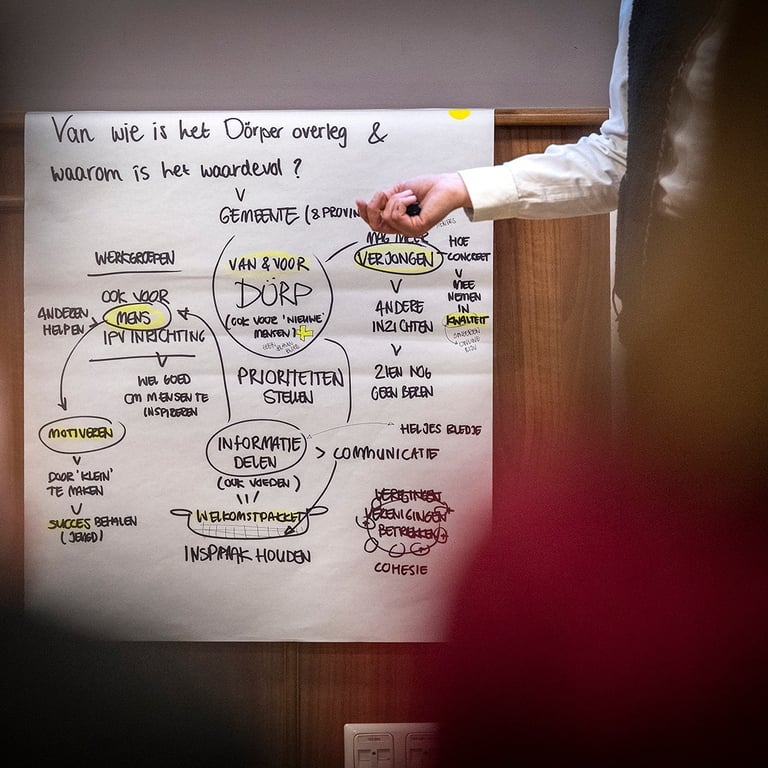 Van wie is het Dörper overleg &
waarom is het waardevol?
GEMEENTE (& PROVIN
WERKGROEPEN
OOK VOOR
MENS
IPV INRICHTING
ANDEREN
HELPEN
WEL GOED
OM MENSEN TE
INSPIREREN
MOTIVEREN
DOOR 'KLEIN'
TE MAKEN
SUCCES BEHALEN
(JEUGD)
VAN & VOOR
DÖRP
(OOK VOOR 'NIEUWE'
MENSEN)
PRIORITEITEN
STELLEN
INFORMATIE
DELEN
(OOK VOEDEN)
> COMMUNICATIE
WELKOMSTPAKKET
INSPRAAK HOUDEN
MAG MEER
VERJONGEN
ANDERE
INZICHTEN
ZIEN NOG
GEEN BEREN
HOE
CONCREET
MEE
NEMEN
IN
KWALITEIT
HELJES BLEDJE
VERENIGINGEN
BETREKKEN
COHESIE